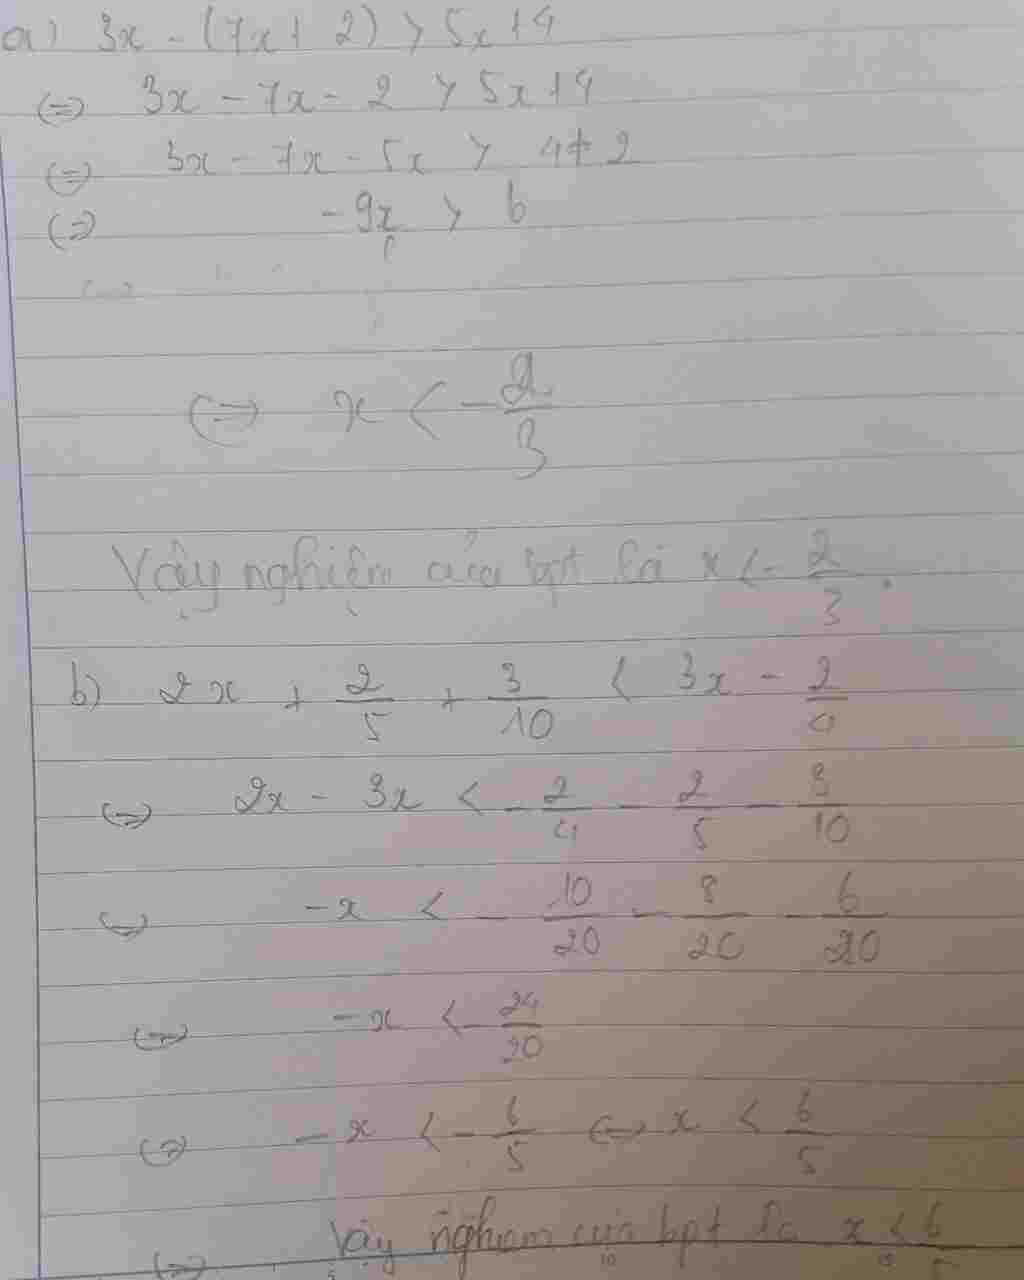 a) 3x - (7x + 2) > 5x + 4
(=) 3x - 7x - 2 > 5x + 4
(=) 3x - 7x - 5x > 4 + 2
(=) -9x > 6
<=> x < -2/3
Vậy nghiệm của bpt là x < -2/3.
b) 2x + 2/5 + 3/10 < 3x - 2/4
<=> 2x - 3x < -2/4 - 2/5 - 3/10
<=> -x < -10/20 - 8/20 - 6/20
<=> -x < -24/20
<=> -x < -6/5 <=> x < 6/5
<=> Vậy nghiệm của bpt là x < 6/5